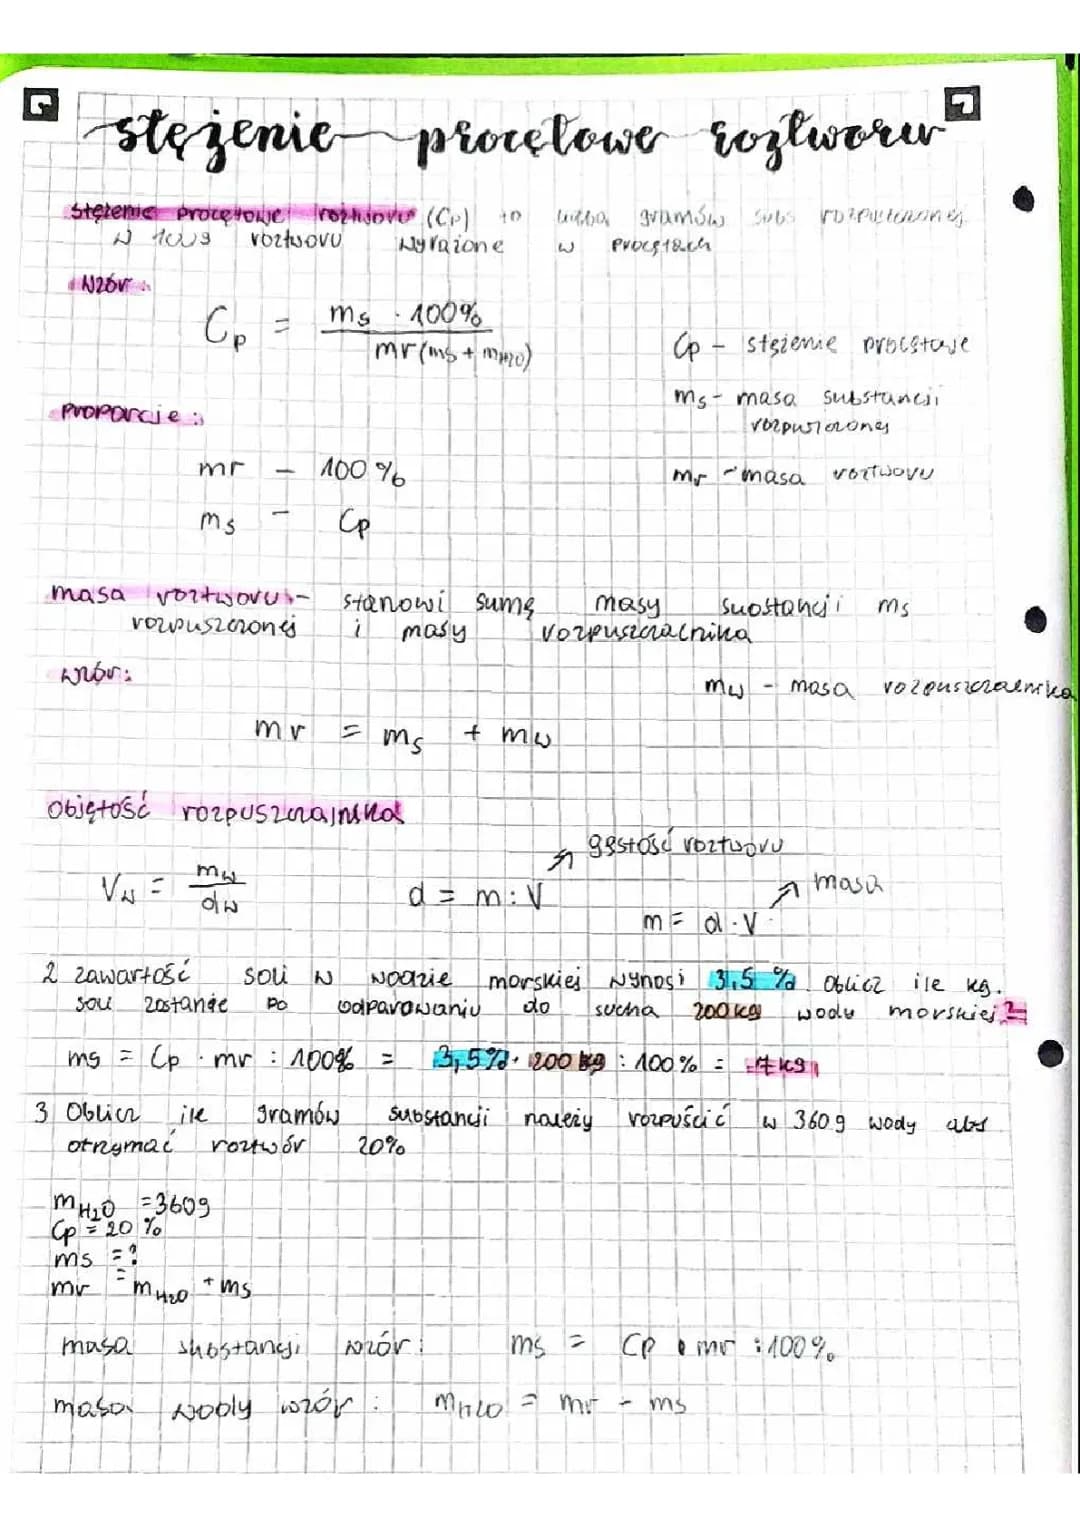 stężenie procętowe roztworu
stężenie procętowe roztworu (Cp) to liczba gramów subs rozpuszczonej
w 100g roztworu wyrażone w procętach
wzór:
Cp = ms · 100%
mr (ms + mH2O)
Cp - stężenie procętowe
ms - masa substancji
rozpuszczonej
proporcje:
mr - 100%
mr - masa roztworu
ms - Cp
masa roztworu - stanowi sumę masy substancji ms
rozpuszczonej i masy rozpuszczalnika
wzór:
mw - masa rozpuszczalnika
mr = ms + mw
Objętość rozpuszczalnika
gęstość roztworu
Vw = mw
dw
d = m : V
masa
m = d · V
2 zawartość soli w wodzie morskiej wynosi 3,5 %. Oblicz ile kg.
soli zostanie po odparowaniu do sucha 200 kg wody morskiej?
ms = Cp · mr : 100% = 3,5% · 200 kg : 100% = 7 kg
3 Oblicz ile gramów substancji należy rozpuścić w 360g wody aby
otrzymać roztwór 20%
mH2O = 360g
Cp = 20 %
ms = ?
mr = mH2O + ms
masa substancji wzór: ms = Cp · mr : 100%
masa wody wzór: mH2O = mr - ms